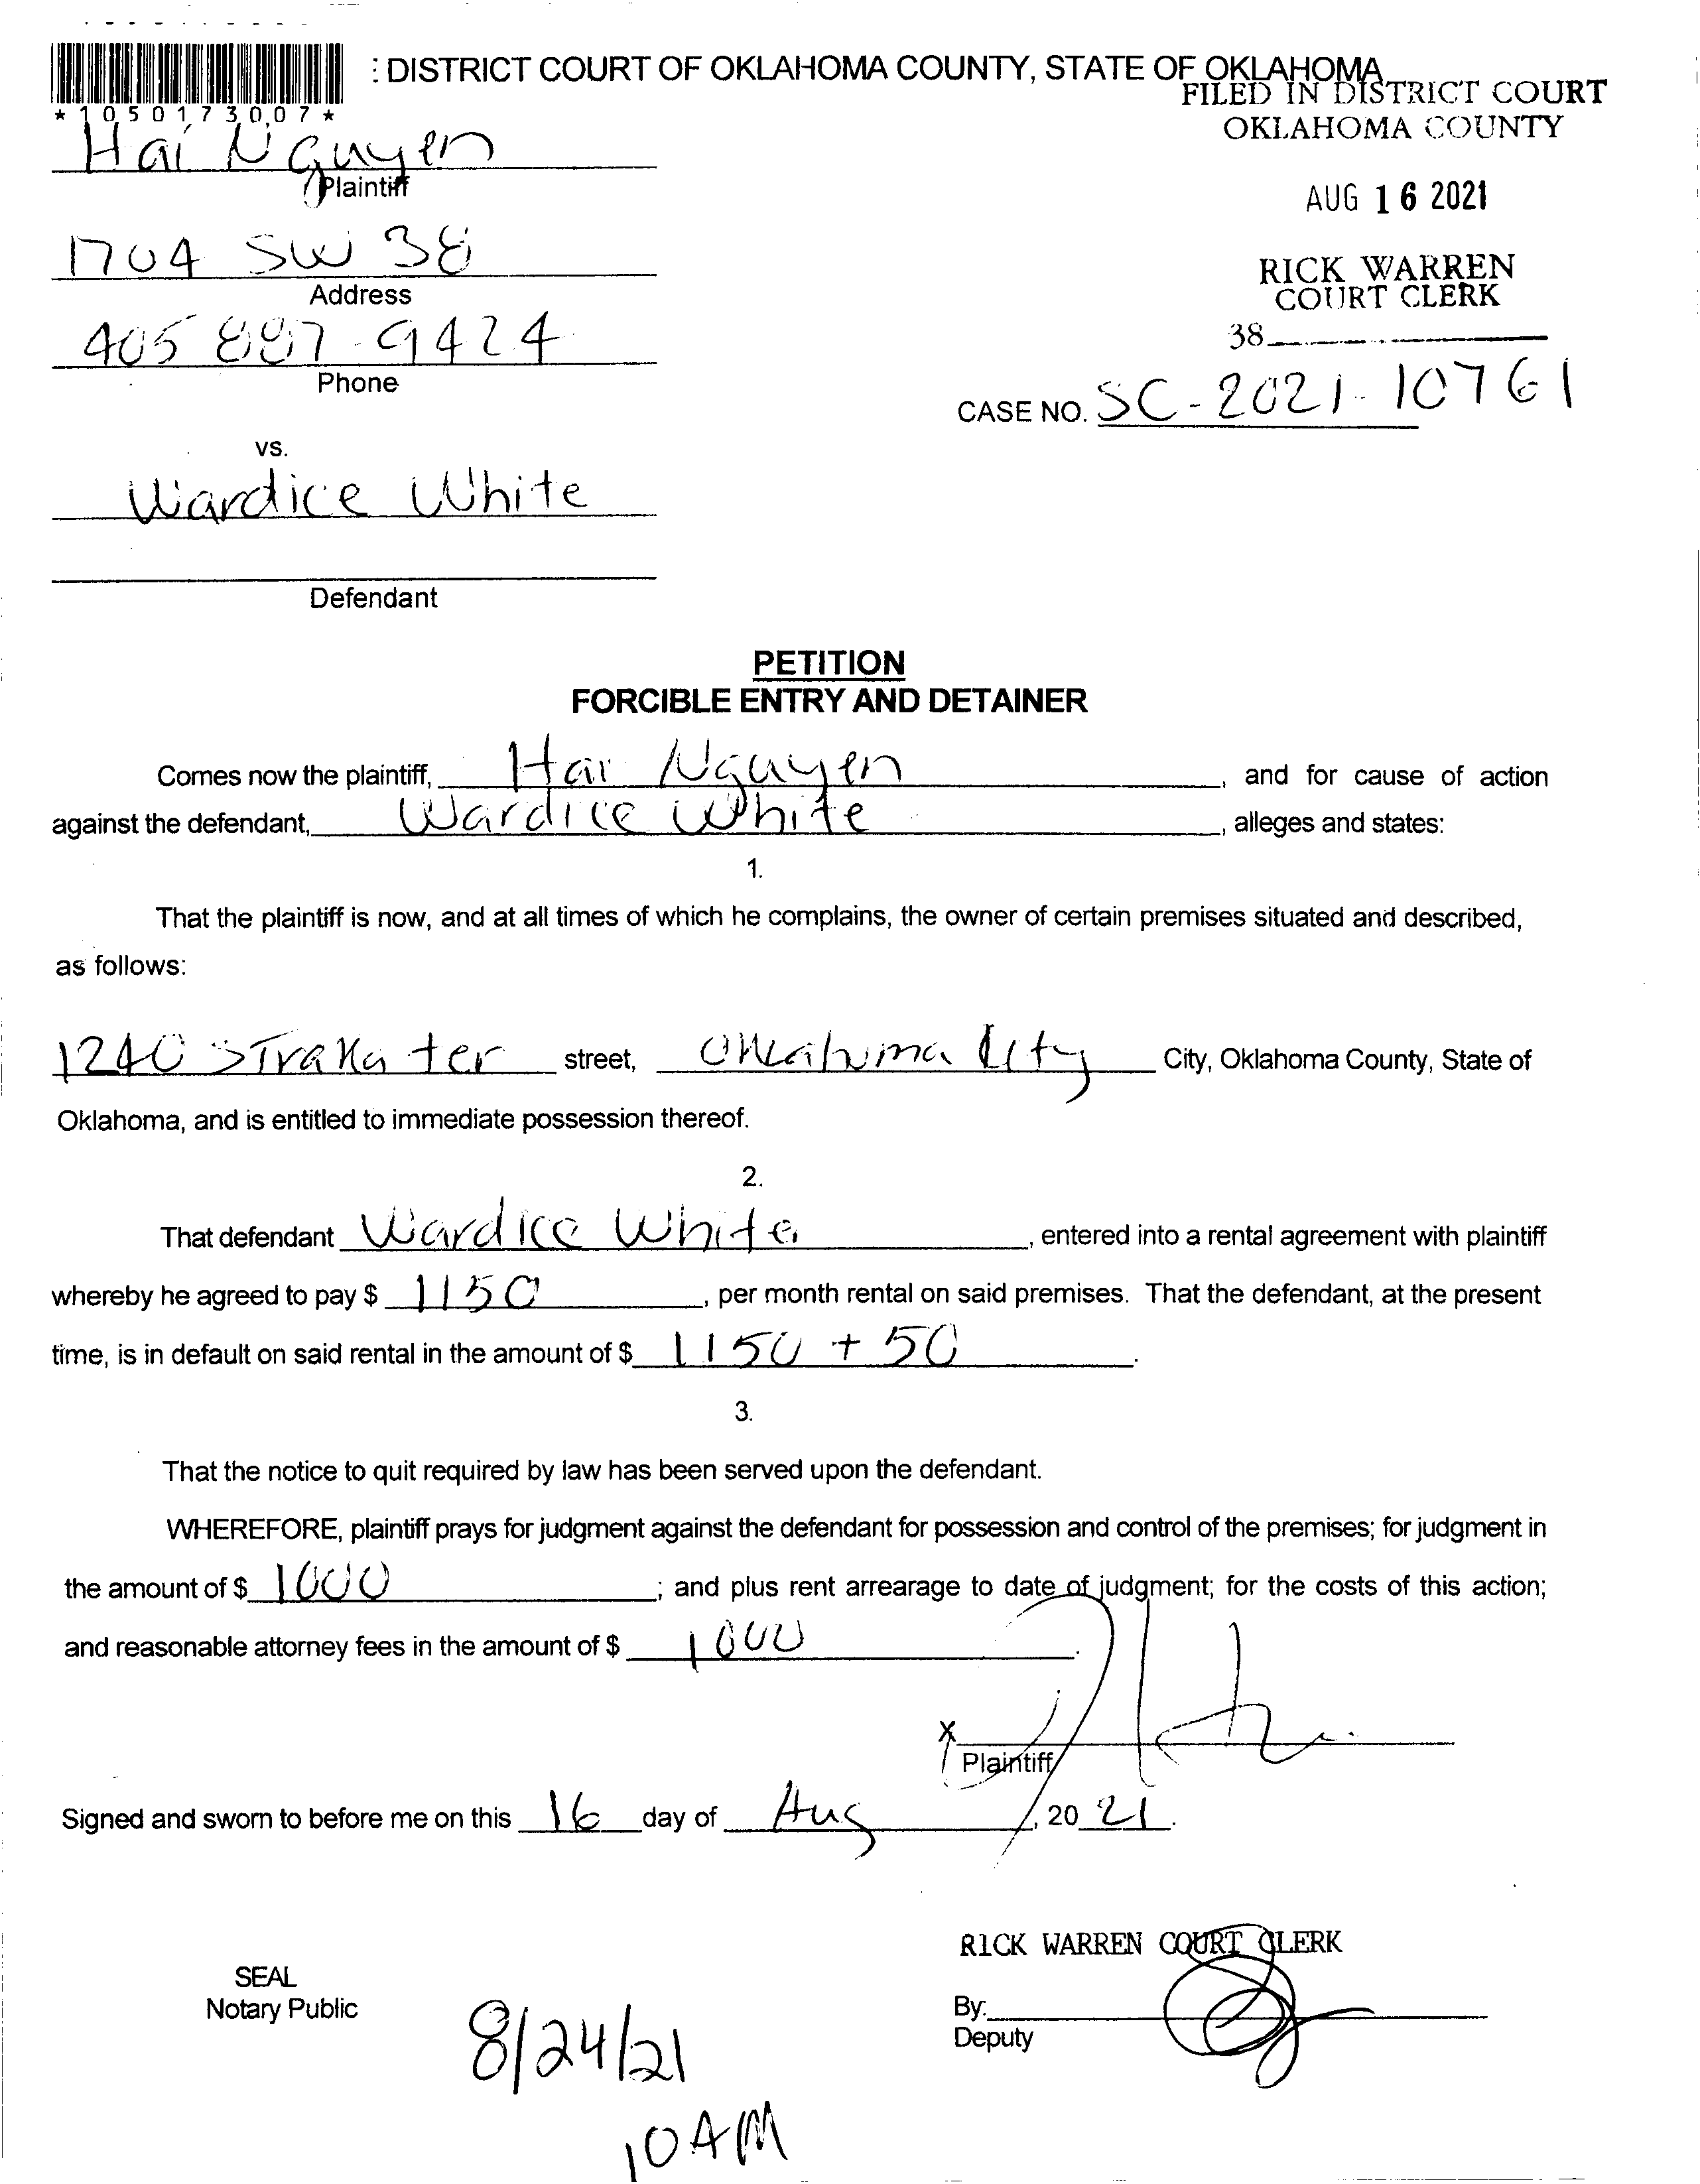 : DISTRICT COURT OF OKLAHOMA COUNTY, STATE OF OKLAHOMA
FILED IN DISTRICT COURT
OKLAHOMA COUNTY
*1050173007*
Hai Nguyen
Plaintiff
AUG 16 2021
1704 SW 38
Address
RICK WARREN
COURT CLERK
405 887-9424
Phone
38
CASE NO. SC-2021-10761
vs.
Wardice White
Defendant
PETITION
FORCIBLE ENTRY AND DETAINER
Comes now the plaintiff, Hai Nguyen, and for cause of action
against the defendant, Wardice White, alleges and states:
1.
That the plaintiff is now, and at all times of which he complains, the owner of certain premises situated and described,
as follows:
1240 Straka ter street, Oklahoma City City, Oklahoma County, State of
Oklahoma, and is entitled to immediate possession thereof.
2.
That defendant Wardice White, entered into a rental agreement with plaintiff
whereby he agreed to pay $ 1150, per month rental on said premises. That the defendant, at the present
time, is in default on said rental in the amount of $ 1150 + 50.
3.
That the notice to quit required by law has been served upon the defendant.
WHEREFORE, plaintiff prays for judgment against the defendant for possession and control of the premises; for judgment in
the amount of $ 1000; and plus rent arrearage to date of judgment; for the costs of this action;
and reasonable attorney fees in the amount of $ 1000.
X
Plaintiff
Signed and sworn to before me on this 16 day of Aug, 20 21.
RICK WARREN COURT CLERK
SEAL
Notary Public
By:
Deputy
8/24/21
10 AM